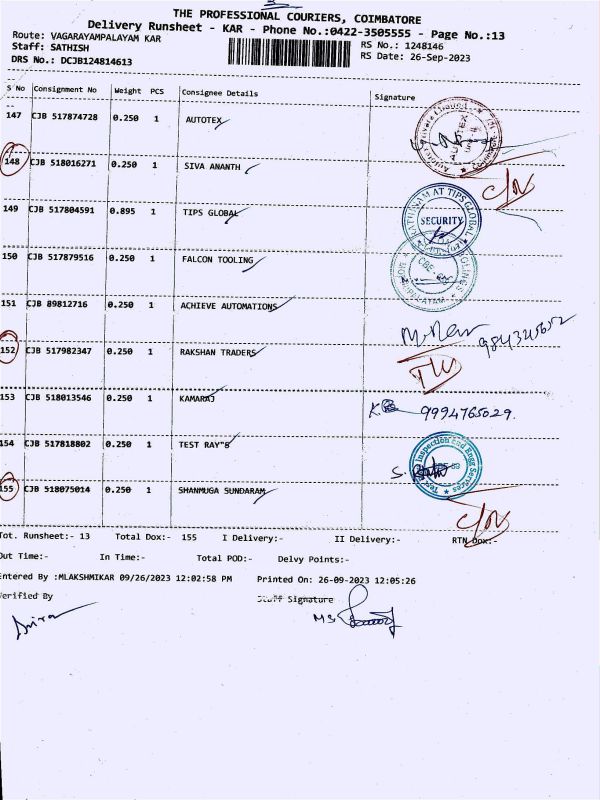 THE PROFESSIONAL COURIERS, COIMBATORE
Delivery Runsheet - KAR - Phone No.:0422-3505555 - Page No.:13
Route: VAGARAYAMPALAYAM KAR RS No.: 1248146
Staff: SATHISH RS Date: 26-Sep-2023
DRS No.: DCJB124814613
S No Consignment No Weight PCS Consignee Details Signature
147 CJB 517874728 0.250 1 AUTOTEX
148 CJB 518016271 0.250 1 SIVA ANANTH
C/N
149 CJB 517804591 0.895 1 TIPS GLOBAL
AT TIPS GLOBAL
SECURITY
150 CJB 517879516 0.250 1 FALCON TOOLING
151 CJB 89812716 0.250 1 ACHIEVE AUTOMATIONS
152 CJB 517982347 0.250 1 RAKSHAN TRADERS
153 CJB 518013546 0.250 1 KAMARAJ
9994765029.
154 CJB 517818802 0.250 1 TEST RAY"S
Test Inspection and Engg Services
155 CJB 518075014 0.250 1 SHANMUGA SUNDARAM
C/N
Tot. Runsheet:- 13 Total Dox:- 155 I Delivery:- II Delivery:- RTN Dox:-
Out Time:- In Time:- Total POD:- Delvy Points:-
Entered By :MLAKSHMIKAR 09/26/2023 12:02:58 PM Printed On: 26-09-2023 12:05:26
Verified By Staff Signature